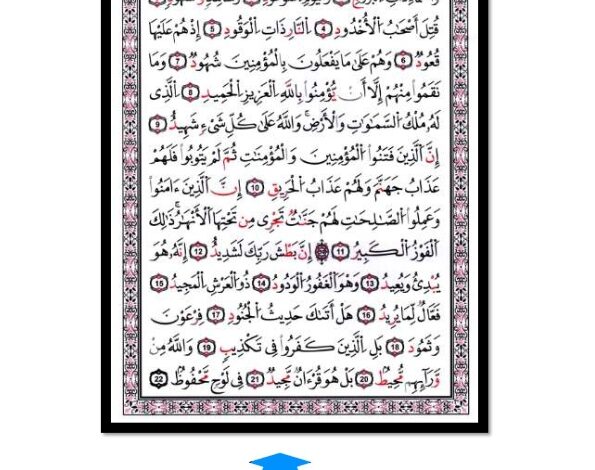 قُتِلَ أَصْحَٰبُ الْأُخْدُودِ ﴿4﴾ النَّارِ ذَاتِ الْوَقُودِ ﴿5﴾ إِذْ هُمْ عَلَيْهَا
قُعُودٌ ﴿6﴾ وَهُمْ عَلَىٰ مَا يَفْعَلُونَ بِالْمُؤْمِنِينَ شُهُودٌ ﴿7﴾ وَمَا
نَقَمُوا۟ مِنْهُمْ إِلَّا أَن يُؤْمِنُوا۟ بِاللَّهِ الْعَزِيزِ الْحَمِيدِ ﴿8﴾ الَّذِى
لَهُۥ مُلْكُ السَّمَٰوَٰتِ وَالْأَرْضِ ۚ وَاللَّهُ عَلَىٰ كُلِّ شَىْءٍ شَهِيدٌ ﴿9﴾
إِنَّ الَّذِينَ فَتَنُوا۟ الْمُؤْمِنِينَ وَالْمُؤْمِنَٰتِ ثُمَّ لَمْ يَتُوبُوا۟ فَلَهُمْ
عَذَابُ جَهَنَّمَ وَلَهُمْ عَذَابُ الْحَرِيقِ ﴿10﴾ إِنَّ الَّذِينَ ءَامَنُوا۟
وَعَمِلُوا۟ الصَّٰلِحَٰتِ لَهُمْ جَنَّٰتٌ تَجْرِى مِن تَحْتِهَا الْأَنْهَٰرُ ۚ ذَٰلِكَ
الْفَوْزُ الْكَبِيرُ ﴿11﴾ إِنَّ بَطْشَ رَبِّكَ لَشَدِيدٌ ﴿12﴾ إِنَّهُۥ هُوَ
يُبْدِئُ وَيُعِيدُ ﴿13﴾ وَهُوَ الْغَفُورُ الْوَدُودُ ﴿14﴾ ذُو الْعَرْشِ الْمَجِيدُ ﴿15﴾
فَعَّالٌ لِّمَا يُرِيدُ ﴿16﴾ هَلْ أَتَىٰكَ حَدِيثُ الْجُنُودِ ﴿17﴾ فِرْعَوْنَ
وَثَمُودَ ﴿18﴾ بَلِ الَّذِينَ كَفَرُوا۟ فِى تَكْذِيبٍ ﴿19﴾ وَاللَّهُ مِن
وَرَآئِهِم مُّحِيطٌ ﴿20﴾ بَلْ هُوَ قُرْءَانٌ مَّجِيدٌ ﴿21﴾ فِى لَوْحٍ مَّحْفُوظٍ ﴿22﴾